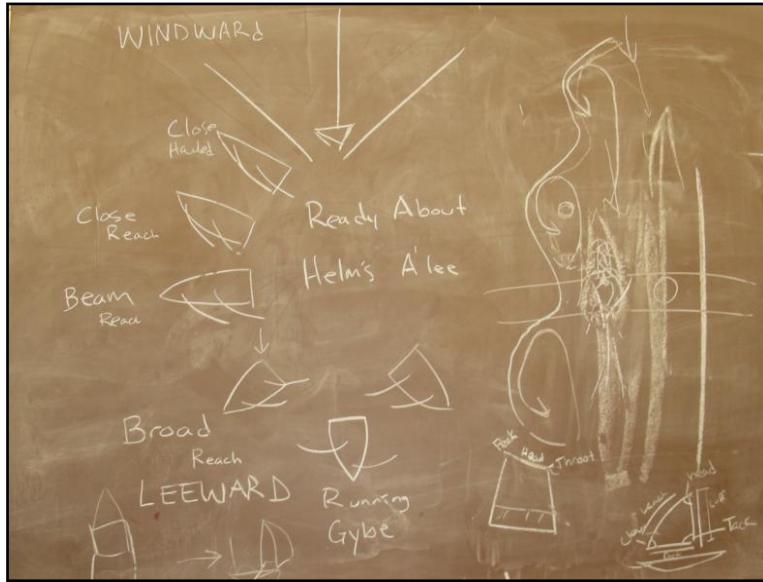 WINDWARD
Close
Hauled
Close
Reach
Ready About
Helm's A'lee
Beam
Reach
Broad
Reach
LEEWARD
Running
Gybe
Peak
Head
Throat
Head
Leech
Luff
Clew
Tack